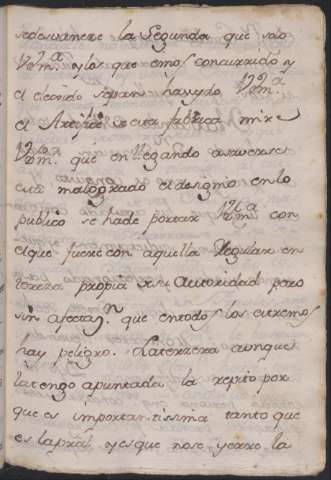 sedesvanere la Segunda que solo
V.Em.ª ylos que emos concurrido y
el elexido sepan hasydo V.Em.ª
el Artifize de esta fabrica mire
V.Em.ª que en llegando asaverse
esta malogrado eldesignio enlo
publico se hade portar V.Em.ª con
elque fuere con aquella Regular en
tereza propia de su Autoridad pero
sin afectaz.ⁿ que entodos los extremos
hay peligro. Laterzera aunque
latengo apuntada la repito por
que es importantissima tanto que
es la pral yesque nose yerre la